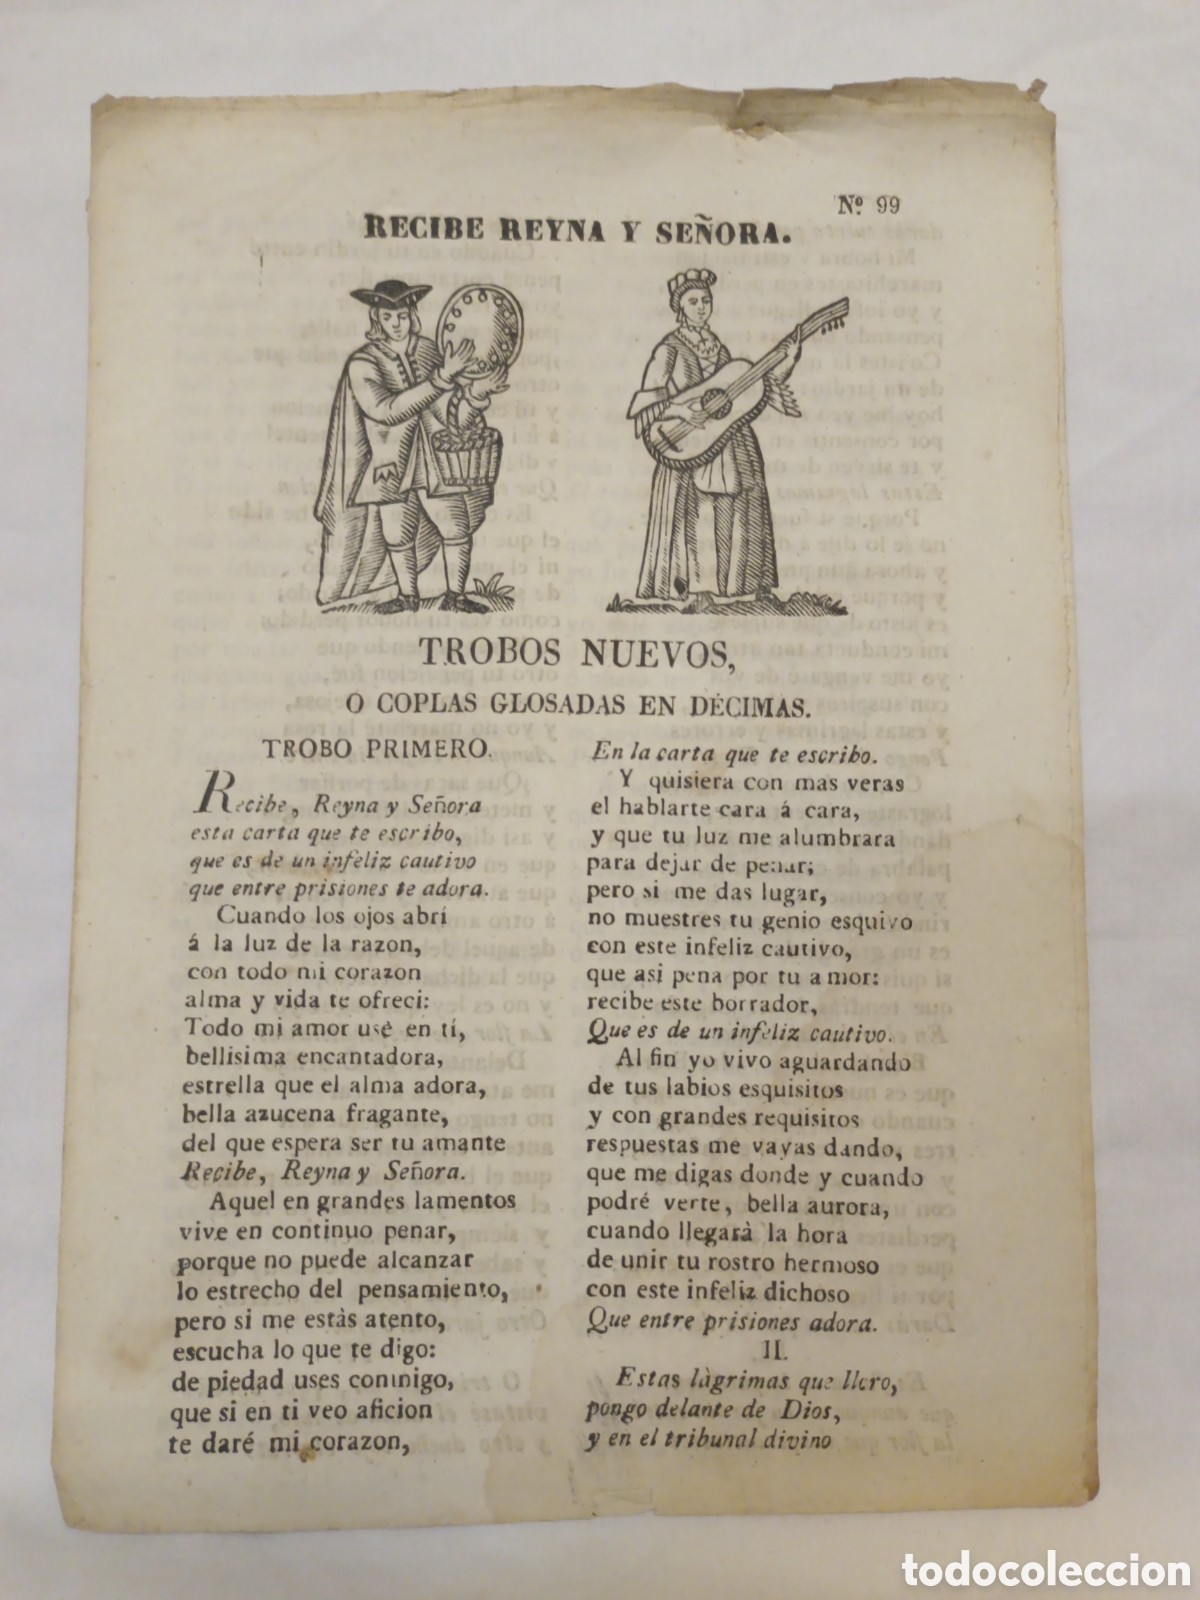 Nº 99
RECIBE REYNA Y SEÑORA.
TROBOS NUEVOS,
O COPLAS GLOSADAS EN DÉCIMAS.
TROBO PRIMERO.
Recibe, Reyna y Señora
esta carta que te escribo,
que es de un infeliz cautivo
que entre prisiones te adora.
Cuando los ojos abrí
á la luz de la razon,
con todo mi corazon
alma y vida te ofreci:
Todo mi amor usé en tí,
bellisima encantadora,
estrella que el alma adora,
bella azucena fragante,
del que espera ser tu amante
Recibe, Reyna y Señora.
Aquel en grandes lamentos
vive en continuo penar,
porque no puede alcanzar
lo estrecho del pensamiento,
pero si me estàs atento,
escucha lo que te digo:
de piedad uses conmigo,
que si en ti veo aficion
te daré mi corazon,
En la carta que te escribo.
Y quisiera con mas veras
el hablarte cara á cara,
y que tu luz me alumbrara
para dejar de penar;
pero si me das lugar,
no muestres tu genio esquivo
con este infeliz cautivo,
que asi pena por tu amor:
recibe este borrador,
Que es de un infeliz cautivo.
Al fin yo vivo aguardando
de tus labios esquisitos
y con grandes requisitos
respuestas me vayas dando,
que me digas donde y cuando
podré verte, bella aurora,
cuando llegarà la hora
de unir tu rostro hermoso
con este infeliz dichoso
Que entre prisiones adora.
II.
Estas làgrimas que lloro,
pongo delante de Dios,
y en el tribunal divino
todocoleccion